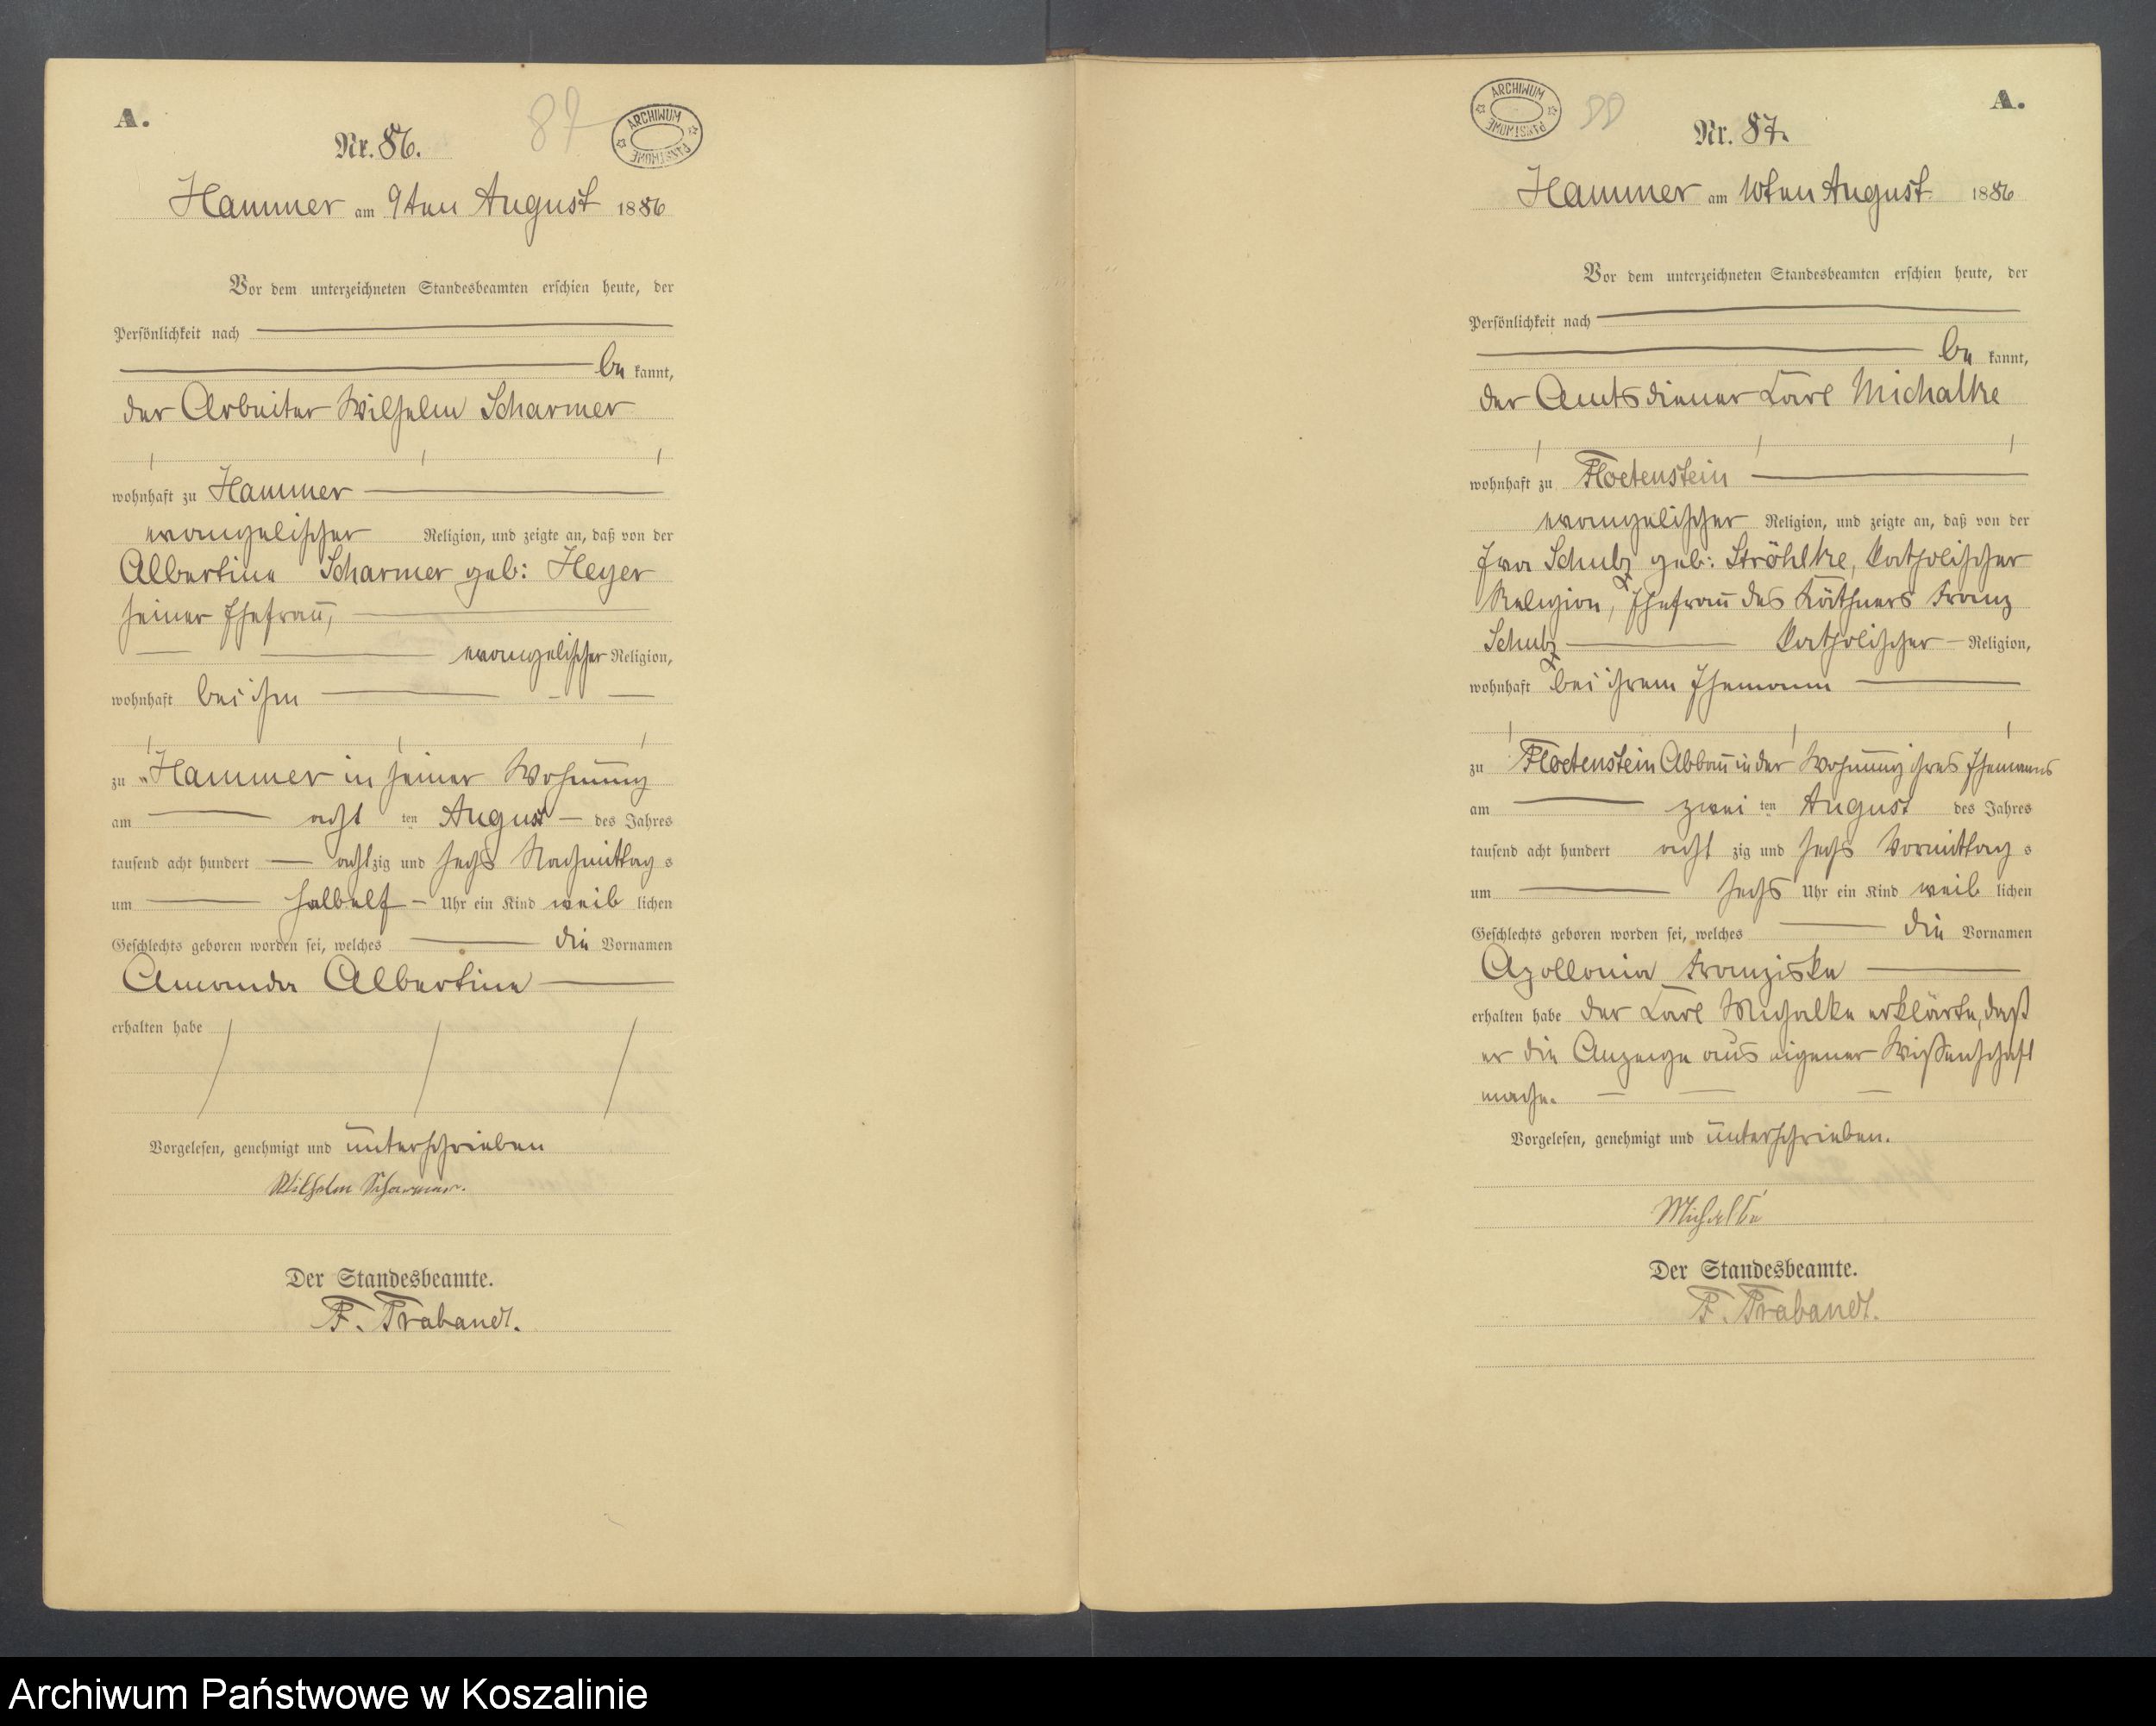 A.
Nr. 86.
87
ARCHIWUM PAŃSTWOWE
Hammer am 9ten August 1886
Vor dem unterzeichneten Standesbeamten erschien heute, der
Persönlichkeit nach
be kannt,
der Arbeiter Wilhelm Scharmer
wohnhaft zu Hammer
evangelischer Religion, und zeigte an, daß von der
Albertine Scharmer geb: Heyer
seiner Ehefrau,
evangelischer Religion,
wohnhaft bei ihm
zu Hammer in seiner Wohnung
am acht ten August des Jahres
tausend acht hundert acht zig und sechs Nachmittag s
um halb elf Uhr ein Kind weib lichen
Geschlechts geboren worden sei, welches die Vornamen
Amanda Albertine
erhalten habe
Vorgelesen, genehmigt und unterschrieben
Wilhelm Scharmer.
Der Standesbeamte.
F. Trabandt.
ARCHIWUM PAŃSTWOWE
88
A.
Nr. 87.
Hammer am 10ten August 1886
Vor dem unterzeichneten Standesbeamten erschien heute, der
Persönlichkeit nach
be kannt,
der Amtsdiener Carl Michalke
wohnhaft zu Floetenstein
evangelischer Religion, und zeigte an, daß von der
Eva Schulz geb: Ströhlke, katholischer
Religion, Ehefrau des Käthners Franz
Schulz katholischer Religion,
wohnhaft bei ihrem Ehemann
zu Floetenstein Abbau in der Wohnung ihres Ehemanns
am zwei ten August des Jahres
tausend acht hundert acht zig und sechs Vormittag s
um sechs Uhr ein Kind weib lichen
Geschlechts geboren worden sei, welches die Vornamen
Apollonia Franziska
erhalten habe der Carl Michalke erklärte, daß
er die Anzeige aus eigener Wissenschaft
mache.
Vorgelesen, genehmigt und unterschrieben.
Michalke
Der Standesbeamte.
F. Trabandt.
Archiwum Państwowe w Koszalinie